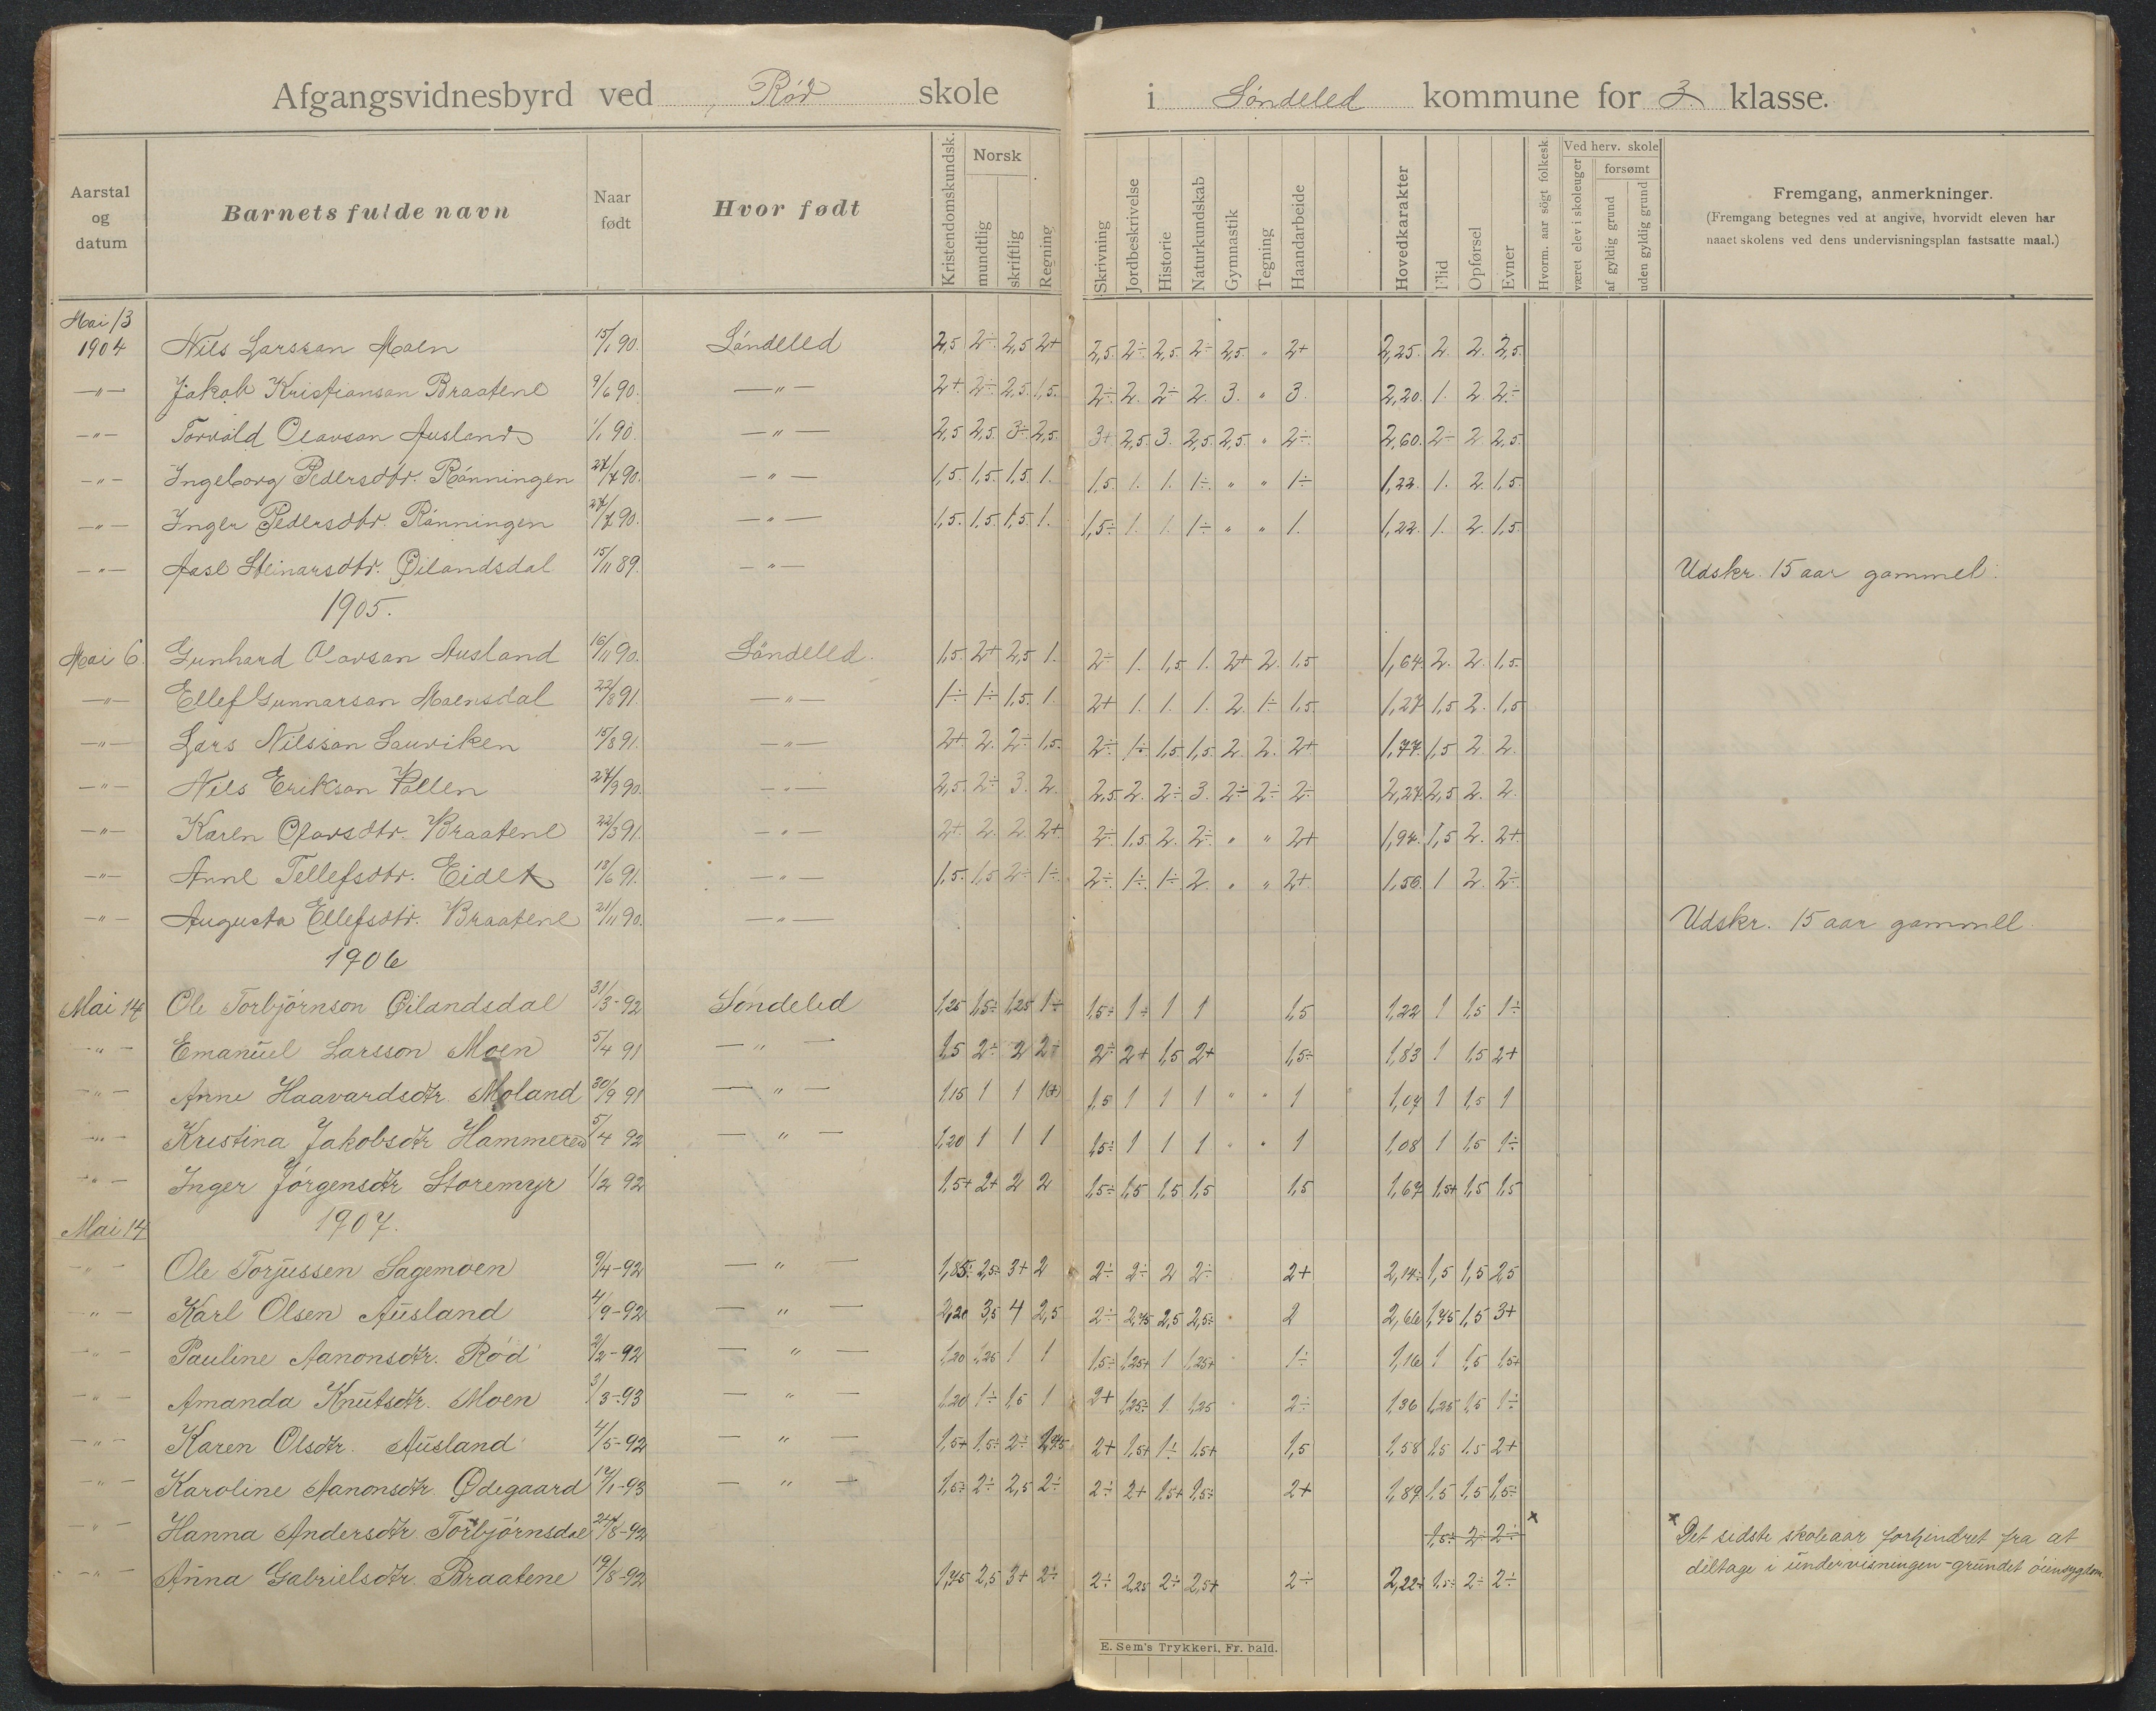 Afgangsvidnesbyrd ved Rød skole i Søndeled kommune for 3. klasse.
Aarstal og datum | Barnets fulde navn | Naar født | Hvor født | Kristendomskundsk. | Norsk mundtlig | skriftlig | Regning | Skrivning | Jordbeskrivelse | Historie | Naturkundskab | Gymnastik | Tegning | Haandarbeide | Hovedkarakter | Flid | Opførsel | Evner | Hvorm. aar søgt folkesk. | Ved herv. skole været elev i skoleuger | forsømt af gyldig grund | uden gyldig grund | Fremgang, anmerkninger.
(Fremgang betegnes ved at angive, hvorvidt eleven har
naaet skolens ved dens undervisningsplan fastsatte maal.)
Mai 13
1904 Nils Larsson Moen 15/1 90. Søndeled 2,5 2÷ 2,5 2+ 2,5. 2÷ 2,5. 2÷ 2,5. " 2+ 2,25. 2. 2. 2,5.
—"— Jakob Kristianson Braatene 9/6 90. —"— 2+ 2÷ 2,5. 1,5. 2÷ 2. 2÷ 2. 3. " 3. 2,20. 1. 2 2÷
—"— Torvald Olavson Ausland 1/1 90. —"— 2,5 2,5. 3÷ 2,5. 3+ 2,5. 3. 2,5. 2,5. " 2÷. 2,60. 2÷ 2 2,5.
—"— Ingeborg Pedersdtr. Rønningen 27/7 90. —"— 1,5. 1,5. 1,5. 1. 1,5. 1. 1. 1÷. " " 1÷ 1,22. 1. 2. 1,5.
—"— Inger Pedersdtr. Rønningen 27/7 90. —"— 1,5. 1,5. 1,5. 1. 1,5÷ 1. 1. 1÷ " " 1. 1,22. 1. 2. 1,5.
—"— Aase Steinarsdtr. Øilandsdal 15/11 89. —"— Udskr. 15 aar gammel.
1905.
Mai 6. Gunhard Olavson Ausland 16/11 90. Søndeled. 1,5. 2+ 2,5 1. 2÷ 1. 1,5 1. 2+ 2. 1,5 1,64. 2. 2. 1,5.
—"— Ellef Gunnarson Moensdal 22/8 91. —"— 1÷ 1÷ 1,5. 1. 2+ 1. 1. 1. 2. 1÷ 1,5 1,27. 1,5 2. 1,5
—"— Lars Nilsson Lauviken 15/8 91. —"— 2+ 2. 2÷ 1,5. 2÷ 1÷ 1,5 1,5 2. 2. 2+ 1,77. 1,5 2 2.
—"— Nils Erikson Vollen 27/9 90. —"— 2,5. 2÷ 3. 2. 2,5. 2. 2÷ 3. 2÷ 2÷ 2÷ 2,27. 2,5 2. 2.
—"— Karen Olavsdtr. Braatene 22/3 91. —"— 2+. 2. 2. 2+ 2÷ 1,5 2. 2÷ " " 2+ 1,94. 1,5 2. 2+
—"— Anne Tellefsdtr. Eidet 18/6 91. —"— 1,5. 1,5 2÷ 1÷. 2÷ 1÷ 1÷ 2. " " 2+ 1,56. 1 2. 2÷
—"— Augusta Ellefsdtr. Braatene 21/11 90. —"— Udskr. 15 aar gammel.
1906
Mai 14 Ole Torbjørnson Øilandsdal 31/3-92 Søndeled 1,25 1,5÷ 1,25 1÷ 1,5÷ 1÷ 1 1 1,5 1,22 1 1,5 1÷
—"— Emanuel Larsson Moen 5/4 91 —"— 1,5 2÷ 2 2+ 2÷ 2+ 1,5 2+ 1,5÷ 1,83 1 1,5 2+
—"— Anne Haavardsdtr. Moland 30/9 91 —"— 1,15 1 1 1(+) 1,5 1 1 1 " " 1 1,07 1 1,5 1
—"— Kristina Jakobsdtr Hammeren 5/4 92 —"— 1,20 1 1 1 1,5÷ 1 1 1 " " 1 1,08 1 1,5 1÷
—"— Inger Jørgensdtr Storemyr 1/2 92 1,5+ 2+ 2 2 1,5÷ 1,5 1,5 1,5 1,5 1,67 1,5+ 1,5 1,5
Mai 14 1907.
—"— Ole Torjussen Sagemoen 9/4-92 —"— 1,85÷ 2,5÷ 3+ 2 2÷ 2÷ 2 2÷ 2+ 2,14÷ 1,5 1,5 2,5
—"— Karl Olsen Ausland 4/9-92 —"— 2,20 3,5 4 2,5 2÷ 2,75 2,5 2,5÷ 2 2,66 1,75 1,5 3+
—"— Pauline Aanonsdtr. Rød 2/2-92 —"— 1,20 1,25 1 1 1,5÷ 1,25+ 1 1,25+ 1÷ 1,16 1 1,5 1,5+
—"— Amanda Knutsdtr. Moen 3/3-93 —"— 1,20 1÷ 1,5 1 2+ 1,25÷ 1 1,25 2÷ 1,36 1,25 1,5 1÷
—"— Karen Olsdtr. Ausland 4/5-92 —"— 1,5+ 1,5÷ 2÷ 1,75 2+ 1,5+ 1÷ 1,5+ 1,5 1,58 1,5 1,5 2+
—"— Karoline Aanonsdtr. Ødegaard 17/1-93 —"— 1,5÷ 2÷ 2,5 2÷ 2÷ 2+ 1,5+ 1,5÷ 2+ 1,89 1,5 1,5 1,5÷
—"— Hanna Andersdtr. Torbjørnsdal 24/8-92 1,5÷ 2÷ 2÷ × × Det sidste skoleaar forhindret fra at
deltage i undervisningen - grundet øiensygdom.
—"— Anna Gabrielsdtr. Braatene 19/8-92 1,75 2,5 3+ 2÷ 2÷ 2,25 2÷ 2,5+ 2÷ 2,22+ 1,5÷ 2÷ 2÷
E. Sem's Trykkeri, Fr. hald.